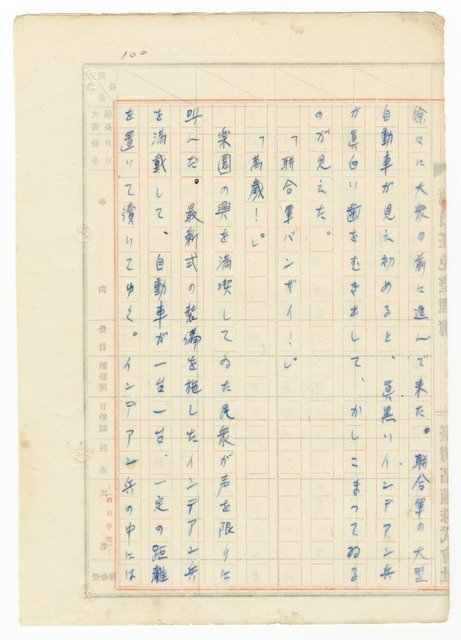 108
徐々に大衆の前に進んで来た。聯合軍の大型
自動車が見え初めると、真黒いインデアン兵
が真白い歯をむき出して、かしこまってゐる
のが見えた。
「聯合軍バンザイ！」
「萬歳！」
楽園の興を満喫してゐた民衆が声を限りに
叫んだ。最新式の装備を施したインデアン兵
を満載して、自動車が一台一台、一定の距離
を置いて續いてゆく。インデアン兵の中には